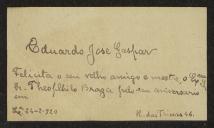 Eduardo José Gaspar
Felicita o seu velho amigo e mestre o Exmo
Sr. Theophilo Braga pelo seu aniversario
em
24-2-920
R. das Trinas 46.